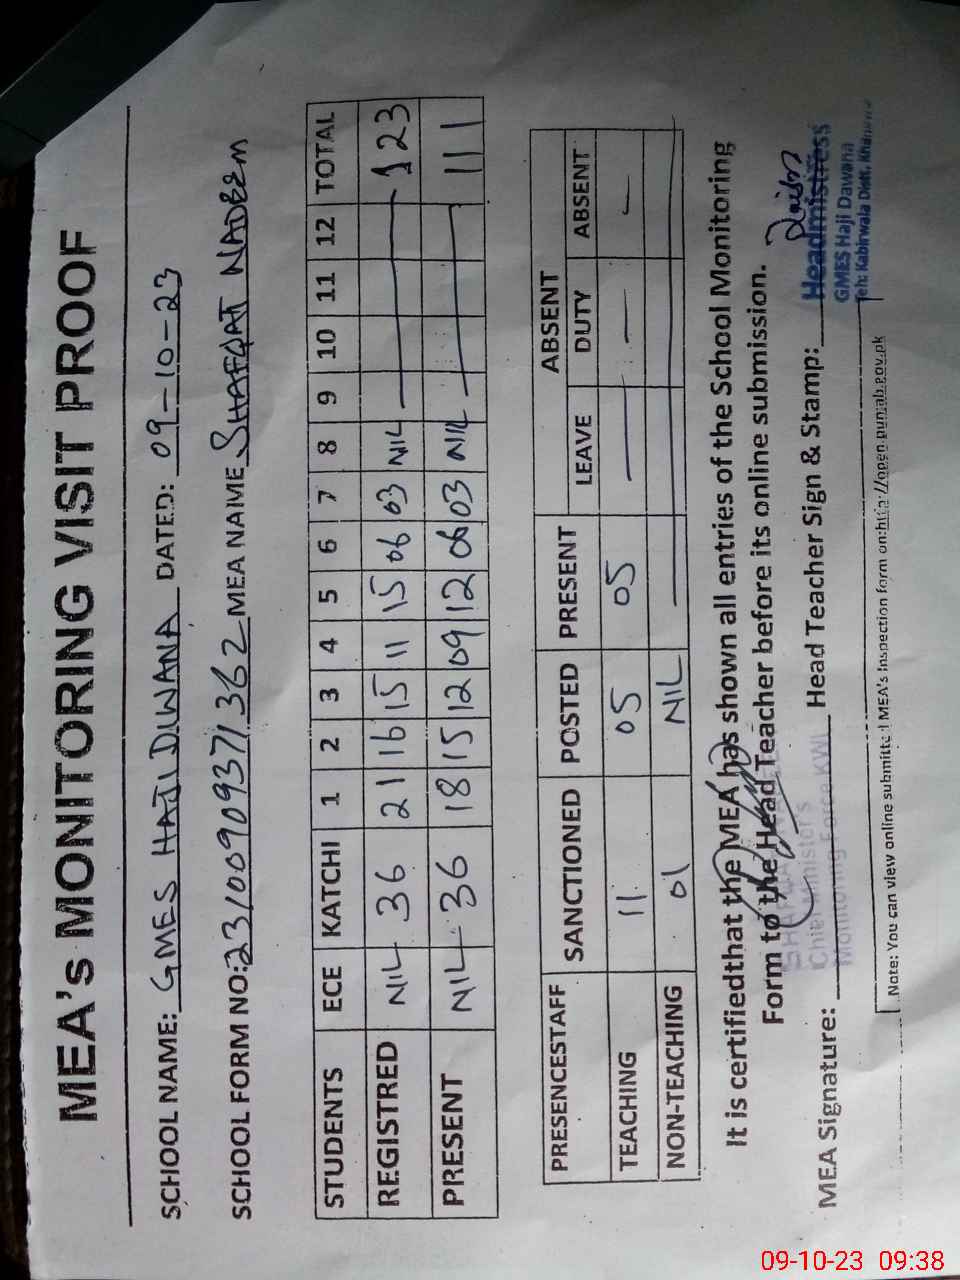 MEA's MONITORING VISIT PROOF
SCHOOL NAME: GMES HAJI DIWANA DATED: 09-10-23
SCHOOL FORM NO: 23100909371362 MEA NAIME SHAFQAT NADEEM
STUDENTS ECE KATCHI 1 2 3 4 5 6 7 8 9 10 11 12 TOTAL
REGISTRED NIL 36 21 16 15 11 15 06 03 NIL — 123
PRESENT NIL 36 18 15 12 09 12 06 03 NIL — 111
PRESENCESTAFF SANCTIONED POSTED PRESENT ABSENT
LEAVE DUTY ABSENT
TEACHING 11 05 05 — — —
NON-TEACHING 01 NIL —
It is certifiedthat the MEA has shown all entries of the School Monitoring
Form to the Head Teacher before its online submission.
Chief Minister's
Monitoring Force KWL
MEA Signature: Head Teacher Sign & Stamp:
Headmistress
GMES Haji Dawana
Teh: Kabirwala Distt. Khanewal
Note: You can view online submitted MEA's Inspection form on:http://open.punjab.gov.pk
09-10-23 09:38